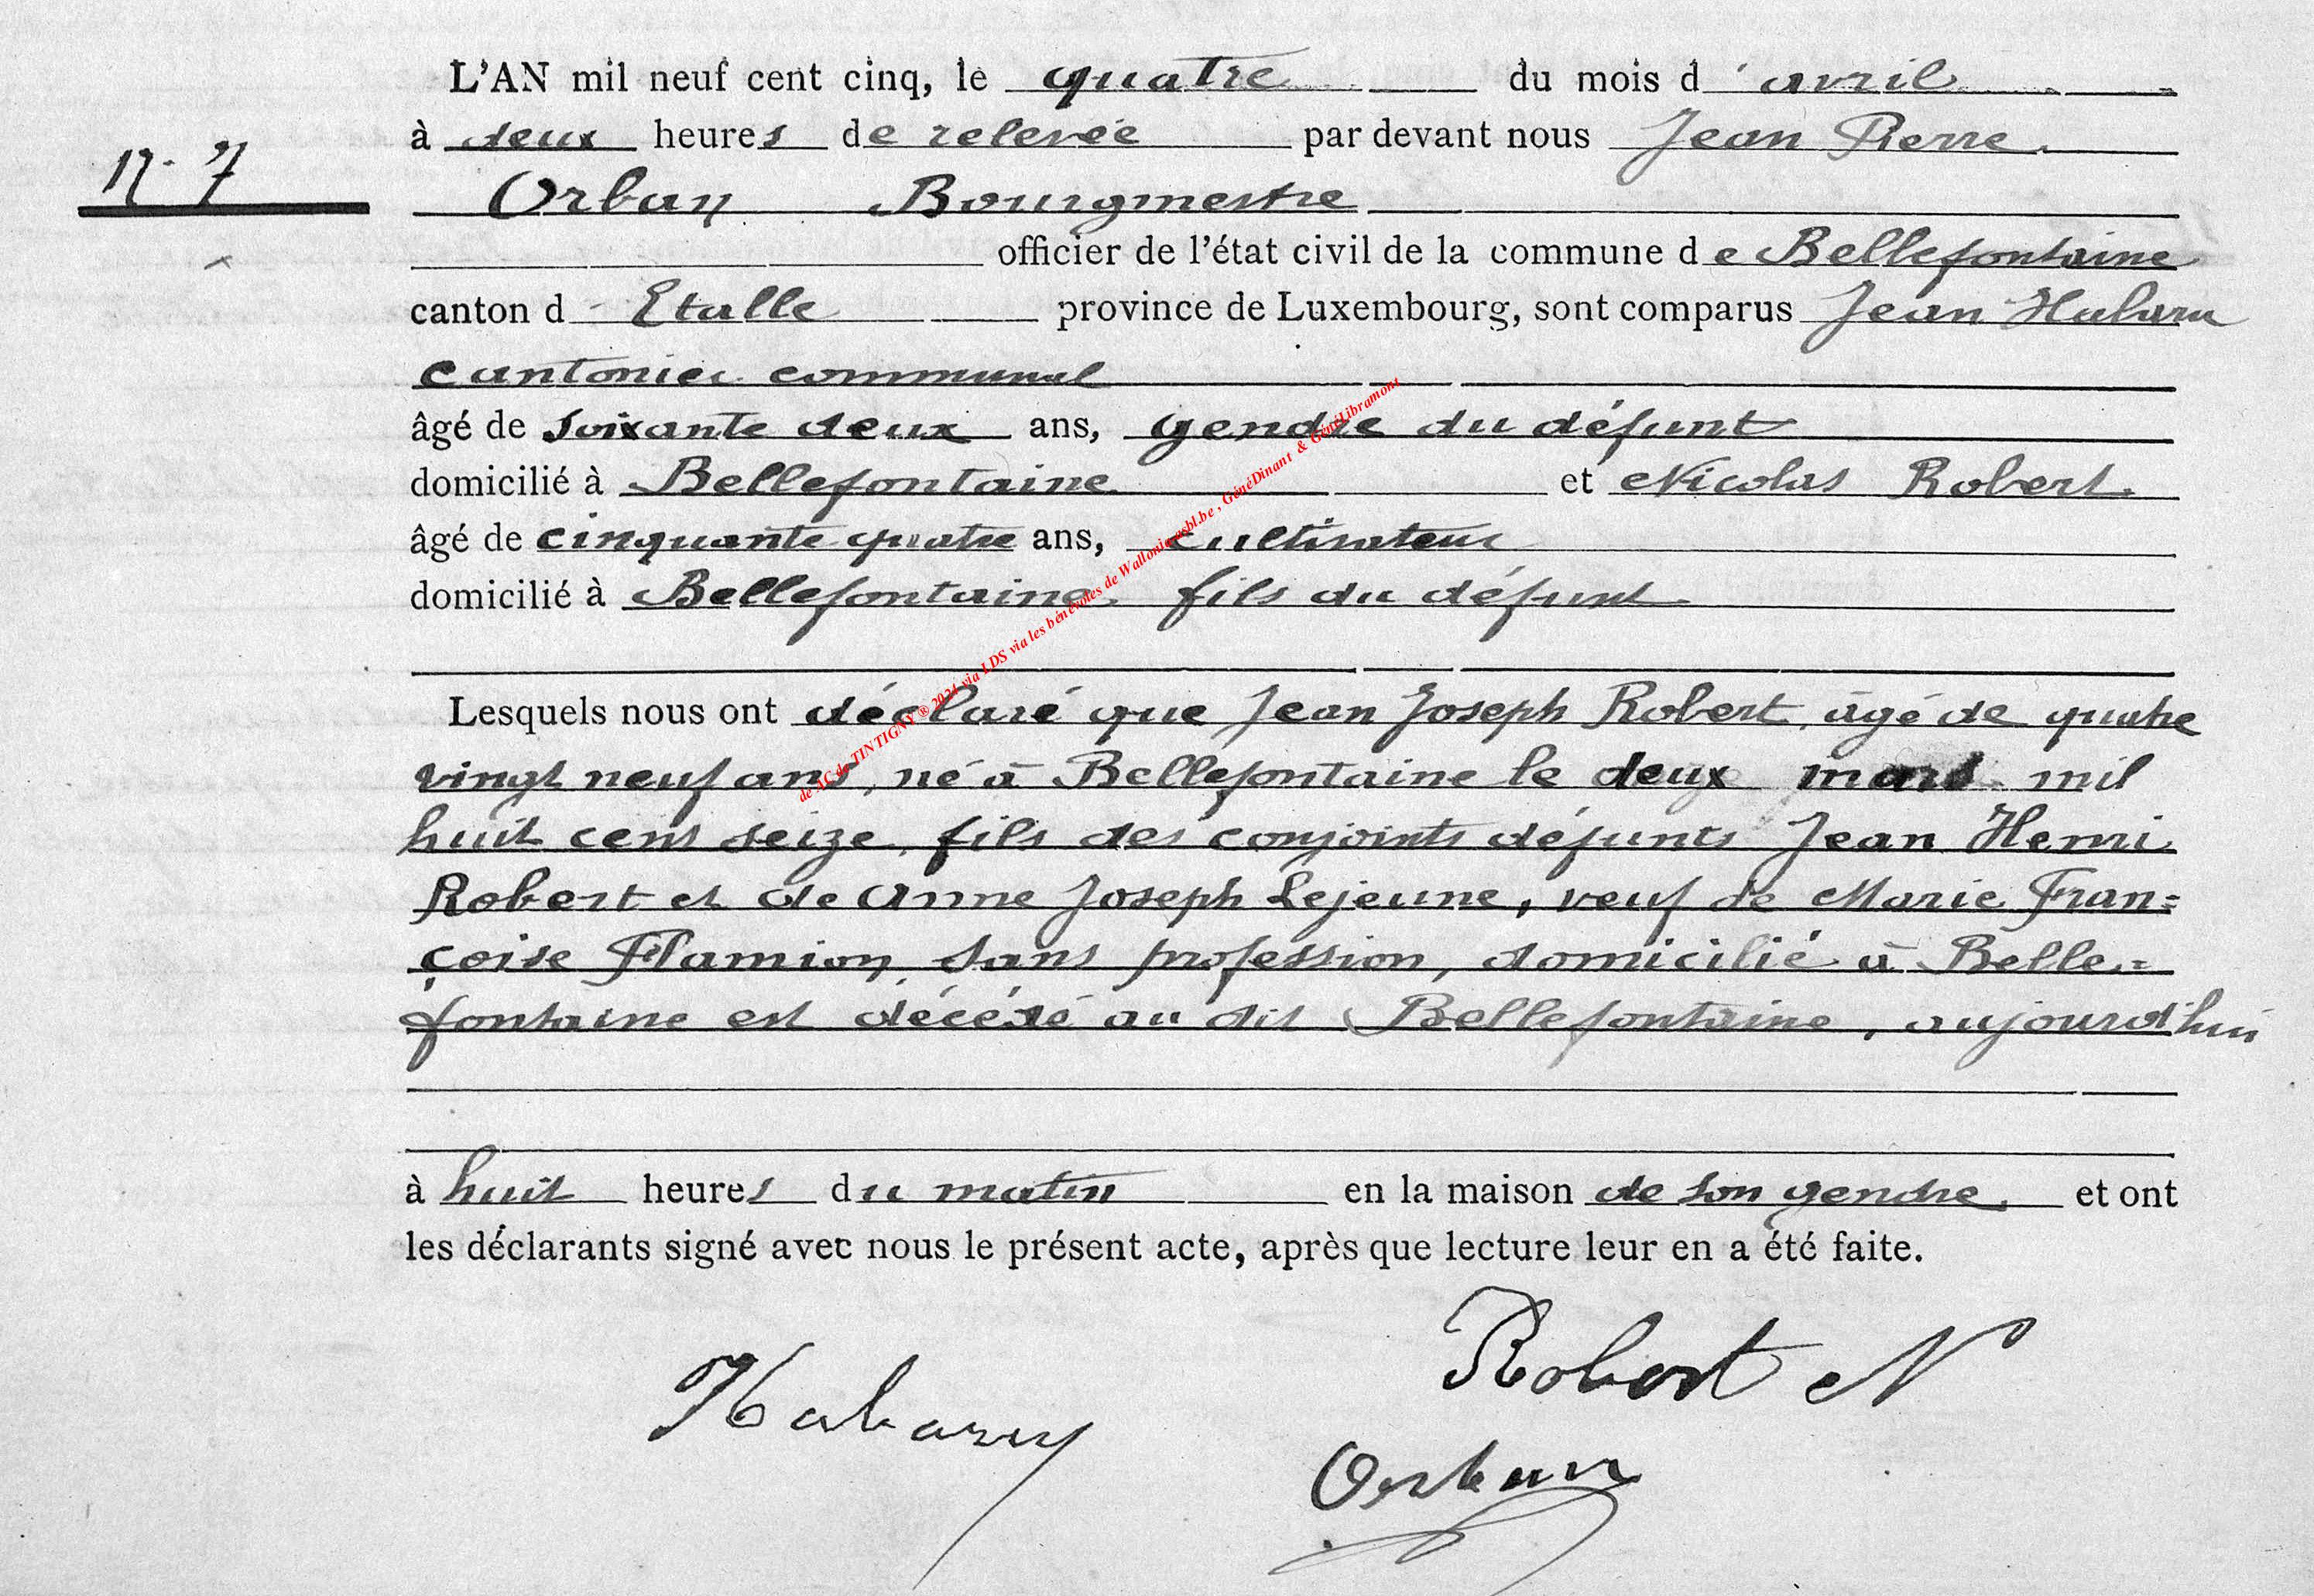 L'AN mil neuf cent cinq, le quatre du mois d'avril
à deux heures de relevée par devant nous Jean Pierre
N° 7
Orban Bourgmestre
officier de l'état civil de la commune de Bellefontaine
canton d'Etalle province de Luxembourg, sont comparus Jean
cantonier communal
âgé de soixante deux ans, gendre du défunt
domicilié à Bellefontaine et Nicolas Robert
âgé de cinquante quatre ans, cultivateur
domicilié à Bellefontaine fils du défunt
Lesquels nous ont déclaré que Jean Joseph Robert, âgé de quatre
vingt neuf ans, né à Bellefontaine le deux mars mil
huit cent seize, fils des conjoints défunts Jean Henri
Robert et de Anne Joseph Lejeune, veuf de Marie Fran=
çoise Flamion, sans profession, domicilié à Belle=
fontaine est décédé au dit Bellefontaine, aujourd'hui
à huit heures du matin en la maison de son gendre, et ont
les déclarants signé avec nous le présent acte, après que lecture leur en a été faite.
Robert N
Orban
de AC de TINTIGNY ® 2021 via LDS via les bénévoles de Wallonia asbl.be, GénéDinant & GénéLibramont